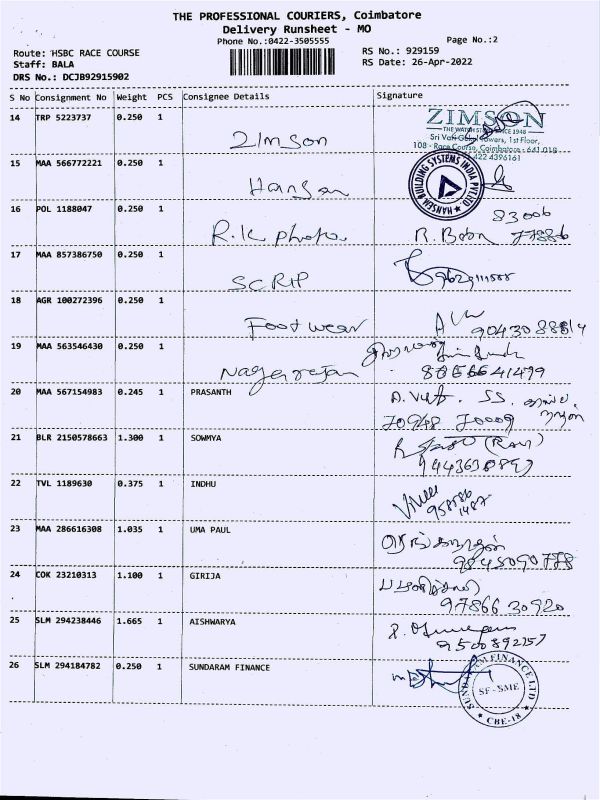 THE PROFESSIONAL COURIERS, Coimbatore
Delivery Runsheet - MO
Phone No.:0422-3505555
Page No.:2
Route: HSBC RACE COURSE
RS No.: 929159
Staff: BALA
RS Date: 26-Apr-2022
DRS No.: DCJB92915902
S No Consignment No Weight PCS Consignee Details Signature
14 TRP 5223737 0.250 1 Zimson
ZIMSON
THE WATCH STORE SINCE 1948
Sri Vari Gokul Towers, 1st Floor,
108 - Race Course, Coimbatore - 641 018
422 4396161
15 MAA 566772221 0.250 1 Hansen
HANSEN BUILDING SYSTEMS INDIA PVT LTD
16 POL 1188047 0.250 1 R.K photo
83006
77886
17 MAA 857386750 0.250 1 SCRIP
18 AGR 100272396 0.250 1 Foot wear
19 MAA 563546430 0.250 1 Nagarajan
8056641499
20 MAA 567154983 0.245 1 PRASANTH
70948 70009
21 BLR 2150578663 1.300 1 SOWMYA
(Ravi)
22 TVL 1189630 0.375 1 INDHU
958586
1487
23 MAA 286616308 1.035 1 UMA PAUL
9845090778
24 COK 23210313 1.100 1 GIRIJA
97866 30920
25 SLM 294238446 1.665 1 AISHWARYA
9500892257
26 SLM 294184782 0.250 1 SUNDARAM FINANCE
SUNDARAM FINANCE LTD
SF-SME
CBE-18